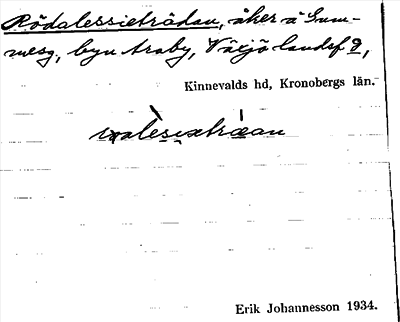 Rödalessieträdan, åker å Gum-
mesg, byn Araby, Växjö landsf 9,
Kinnevalds hd, Kronobergs län.
Erik Johannesson 1934.